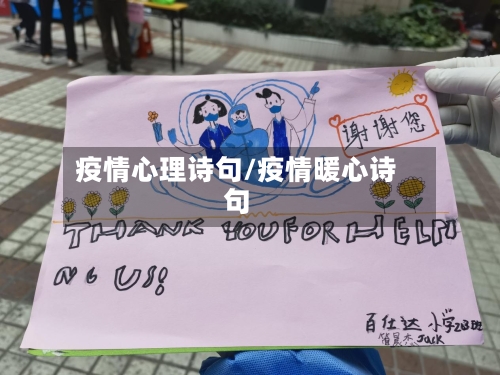 谢谢您
疫情心理诗句/疫情暖心诗
句
THANK YOU FOR HELPI
NG US!
百仕达小学203班
Jack